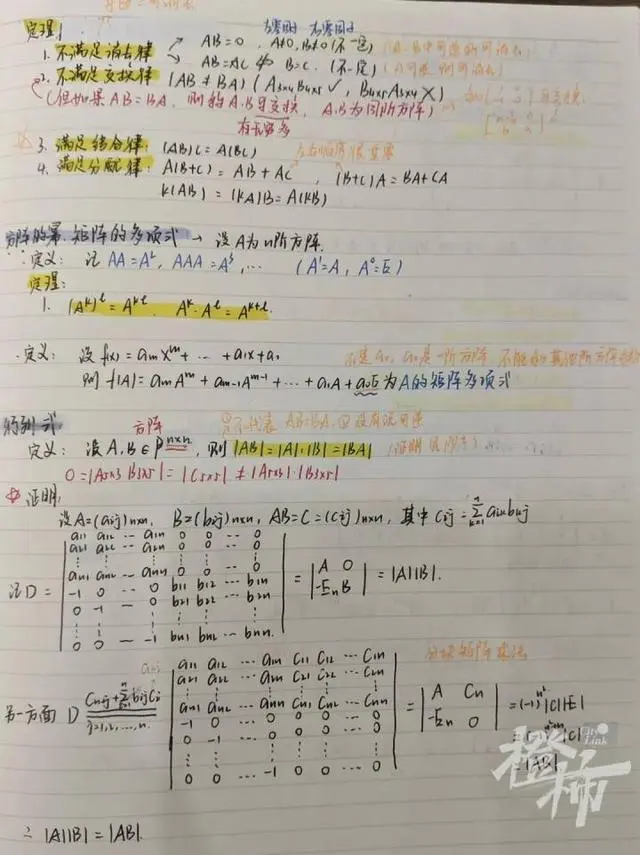 定理:
左零因子 右零因子
1. 不满足消去律 → AB=0, A≠0, B≠0 (不一定)
AB=AC ⇏ B=C. (不一定)
2. 不满足交换律 (AB≠BA) (A3x4 B4x5 ✓, B4x5 A3x4 ✗)
(但如果AB=BA, 则称A.B可交换, A.B为同阶方阵)
3. 满足结合律: (AB)C=A(BC)
4. 满足分配律: A(B+C)=AB+AC, (B+C)A=BA+CA
k(AB)=(kA)B=A(kB)
方阵的幂. 矩阵的多项式 → 设A为n阶方阵.
定义: 记 AA=A², AAA=A³, … (A¹=A, A⁰=E)
定理:
1. (A^k)^l=A^kl. A^k·A^l=A^k+l.
定义: 设 f(x)=amX^m+…+a1x+a0
则 f(A)=amA^m+am-1A^m-1+…+a1A+a0E为A的矩阵多项式
行列式 方阵
定义: 设A,B∈P^n×n, 则|AB|=|A|·|B|=|BA|
0=|A5x3 B3x5|=|C5x5|≠|A5x3|·|B3x5|
证明:
设A=(aij)n×n, B=(bij)n×n, AB=C=(cij)n×n, 其中Cij=∑k=1 n aik bkj
a11 a12 … a1n 0 0 … 0
a21 a22 … a2n 0 0 … 0
an1 an2 … ann 0 0 … 0
记D= -1 0 … 0 b11 b12 … b1n = |A 0 -En B| = |A||B|.
0 -1 … 0 b21 b22 … b2n
0 0 … -1 bn1 bn2 … bnn.
分块矩阵
a11 a12 … a1n C11 C12 … C1n
a21 a22 … a2n C21 C22 … C2n
另一方面 D j=1,2,…,n. an1 an2 … ann Cn1 Cn2 … Cnn = |A Cn -En 0|
-1 0 … 0 0 0 … 0
0 -1 … 0 0 0 … 0
0 0 … -1 0 0 … 0
=|AB|
∴ |A||B|=|AB|.
橙柿